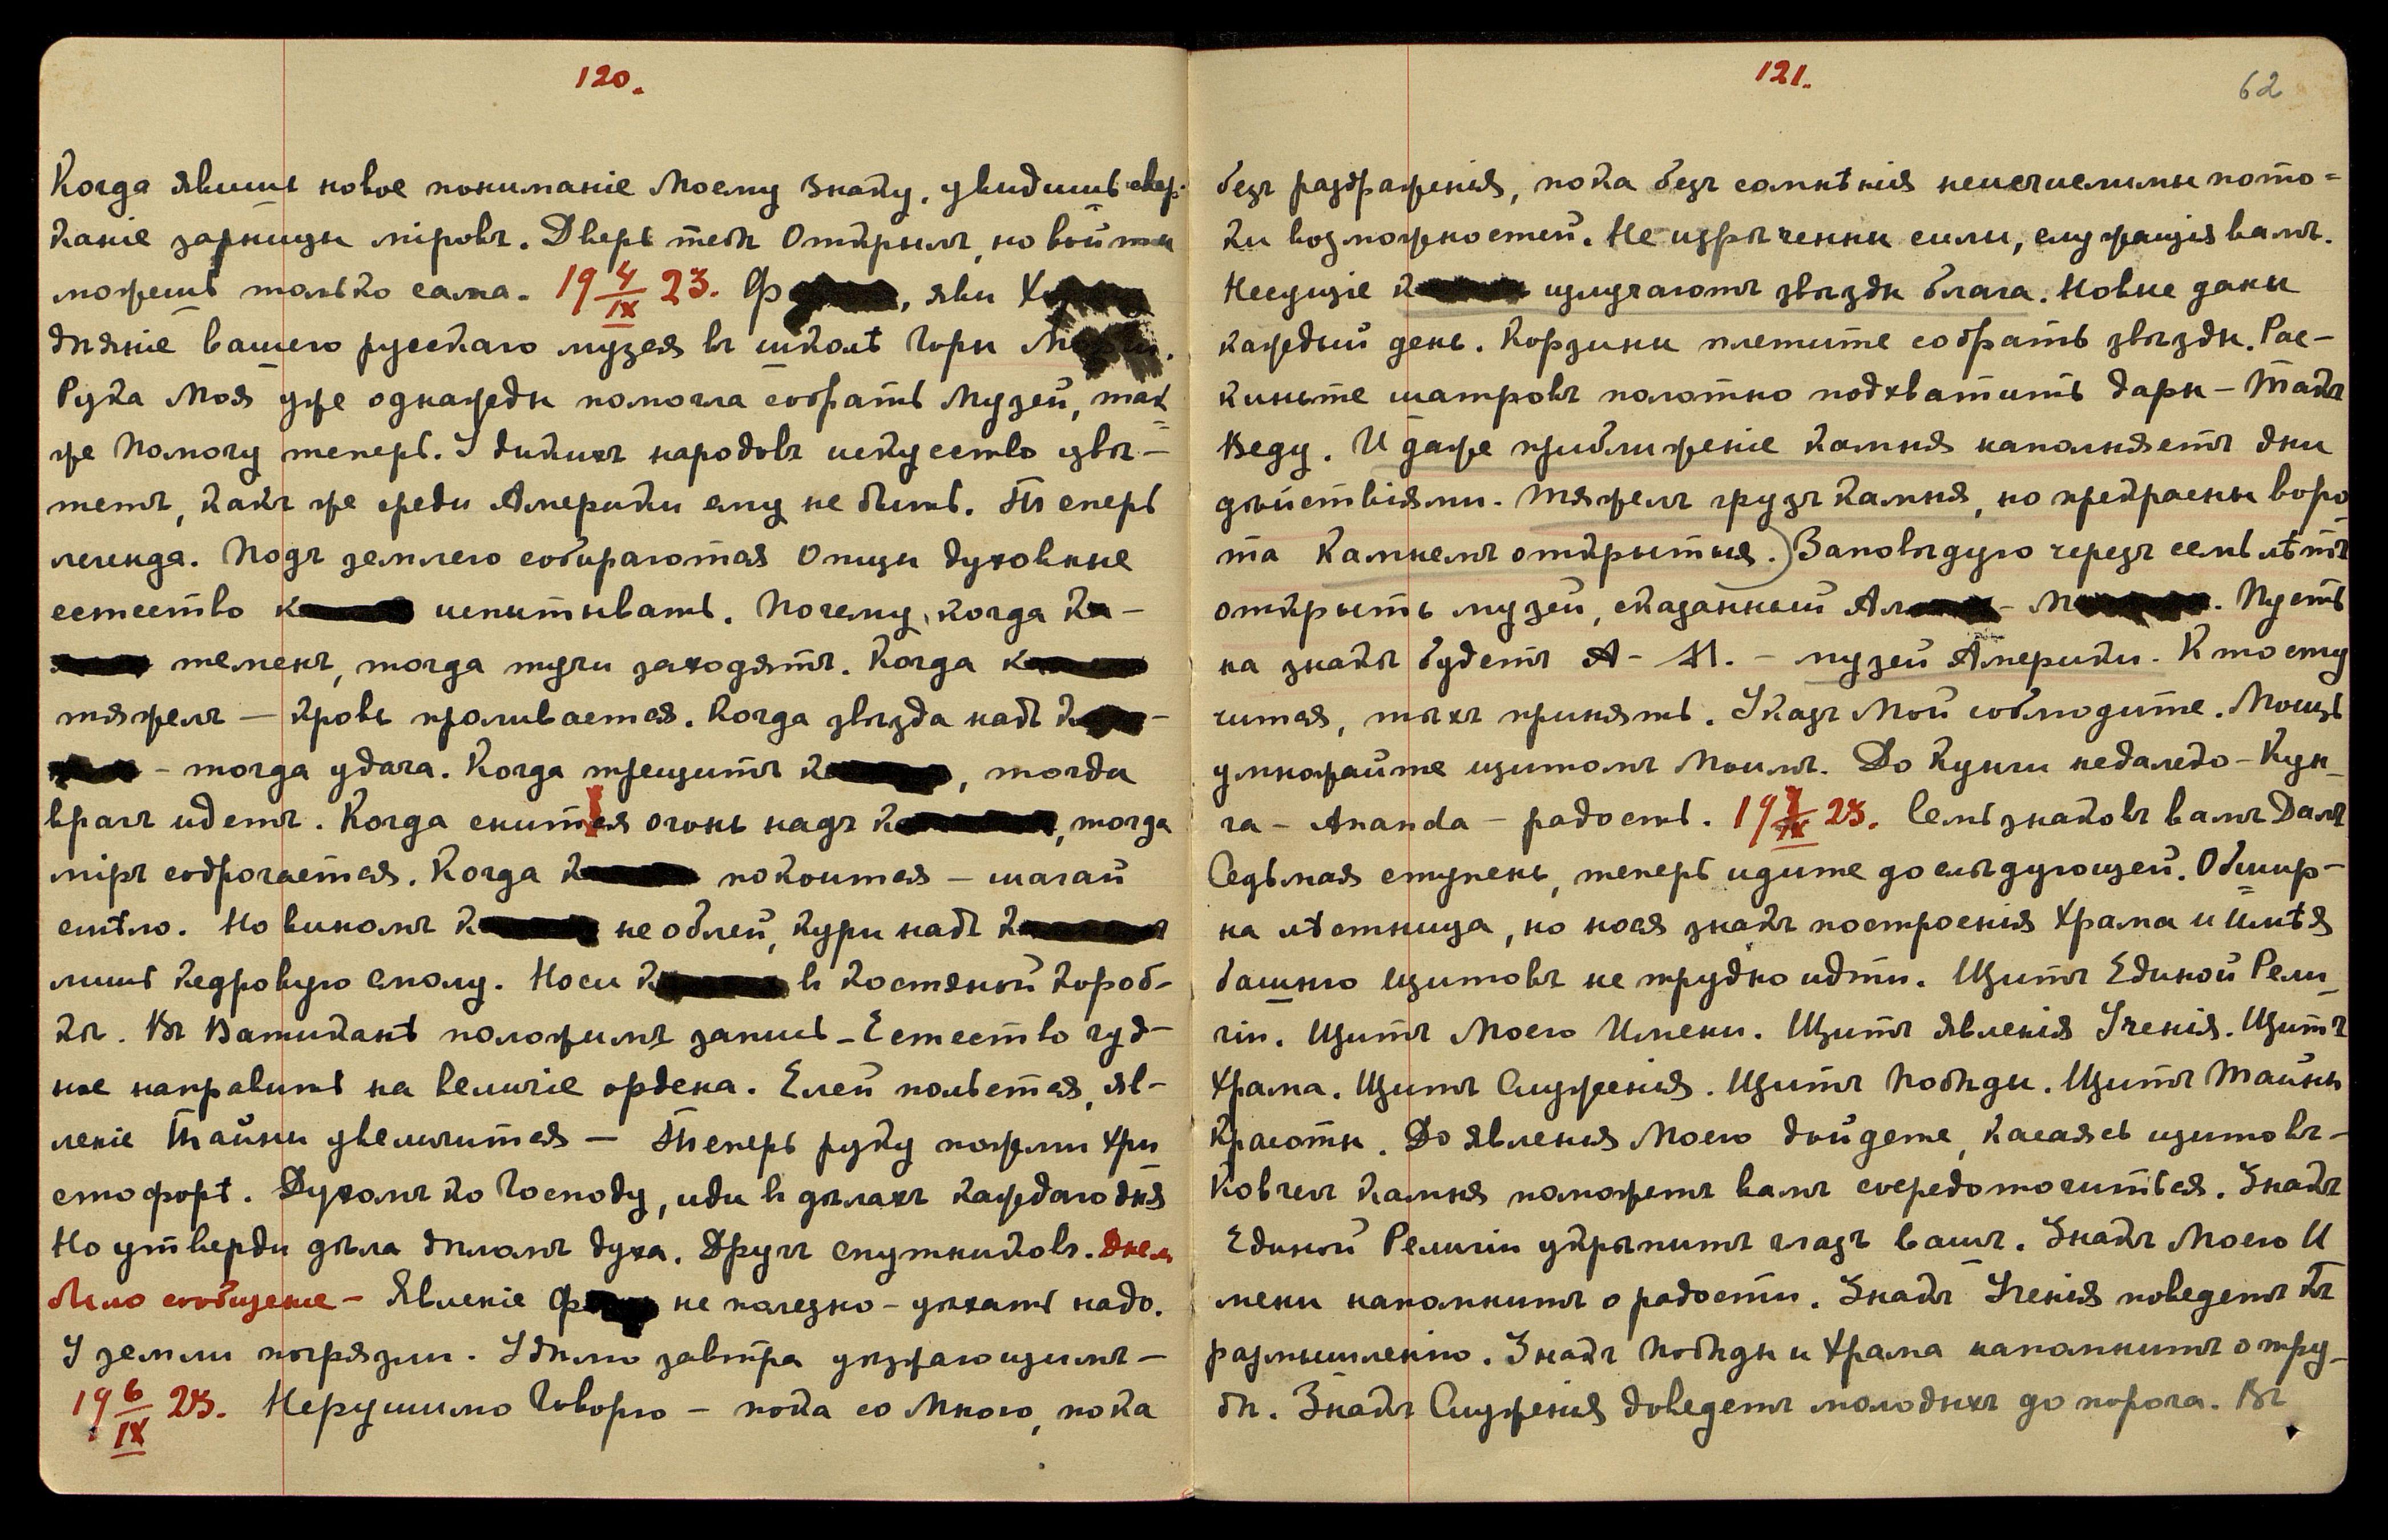 120.
Когда явишь новое пониманіе Моему Знаку, увидишь свер-
каніе зарницы міровъ. Дверь тебѣ Открылъ, но войти
можешь только сама. 19 4/IX 23. Ф , яви Х
дѣяніе вашего русскаго музея въ школѣ Горы М .
Рука Моя уже однажды помогла собрать Музей, так-
же Помогу теперь. У дикихъ народовъ искусство цвѣ-
тетъ, какъ же среди Америки ему не быть. Теперь
легенда. Подъ землею собираются Отцы духовные
естество к испытывать. Почему, когда ка-
теменъ, тогда тучи заходятъ. Когда к
тяжелъ — кровь проливается. Когда звѣзда надъ к -
– тогда удача. Когда трещитъ к , тогда
врагъ идетъ. Когда снится огонь надъ к , тогда
міръ содрогается. Когда к покоится – шагай
смѣло. Но виномъ к не облей, кури надъ к
лишь кедровую смолу. Носи к въ костяной короб-
кѣ. Въ Ватиканѣ положимъ запись – Естество чуд-
ное направить на величіе ордена. Елей польется, яв-
леніе Тайны увеличится — Теперь руку пожми Хри
стофорѣ. Духомъ ко Господу, иди въ дѣлахъ каждаго дня
Но утверди дѣла дѣломъ духа. Другъ спутниковъ. Днем
было сообщение – Явленіе Ф не полезно – уѣхать надо.
У земли погрязли. Удѣлю завтра уѣзжающимъ –
19 6/IX 23. Нерушимо Говорю – пока со Мною, пока
121.
62
безъ раздраженія, пока безъ сомнѣнія неисчислимы пото-
ки возможностей. Не изрѣченны силы, служащія вамъ.
Несущіе к излучаютъ звѣзды блага. Новые даны
каждый день. Корзины плетите собрать звѣзды. Рас-
киньте шатровъ полотно подхватить дары – Такъ
Веду. И даже приближеніе камня наполняетъ дни
дѣйствіями. Тяжелъ грузъ камня, но прекрасны воро
та Камнемъ открытыя.) Заповѣдую черезъ семь лѣтъ
открыть музей, сказанный Ал - М . Пусть
на знакѣ будетъ А – М. – музей Америки. К твоему
чится, тѣхъ принять. Указъ Мой соблюдите. Мощь
умножайте щитомъ Моимъ. До Кунги недалеко – Кун-
га – Ananda – радость. 19 7/IX 23. Семь знаковъ вамъ Далъ
Седьмая ступень, теперь идите до слѣдующей. Обшир-
на лѣстница, но нося знакъ построенія Храма и имѣя
башню щитовъ не трудно идти. Щитъ Единой Рели
гіи. Щитъ Моего Имени. Щитъ явленія Ученія. Щитъ
Храма. Щитъ Служенія. Щитъ Побѣды. Щитъ Тайны
Красоты. До явленія Моего дойдете, касаясь щитовъ –
Ковчегъ камня поможетъ вамъ сосредоточиться. Знакъ
Единой Религіи укрѣпитъ глазъ вашъ. Знакъ Моего И
мени напомнитъ о радости. Знакъ Ученія поведетъ къ
размышленію. Знакъ Побѣды и Храма напомнитъ о тру-
бѣ. Знакъ Служенія доведетъ молодыхъ до порога. Въ